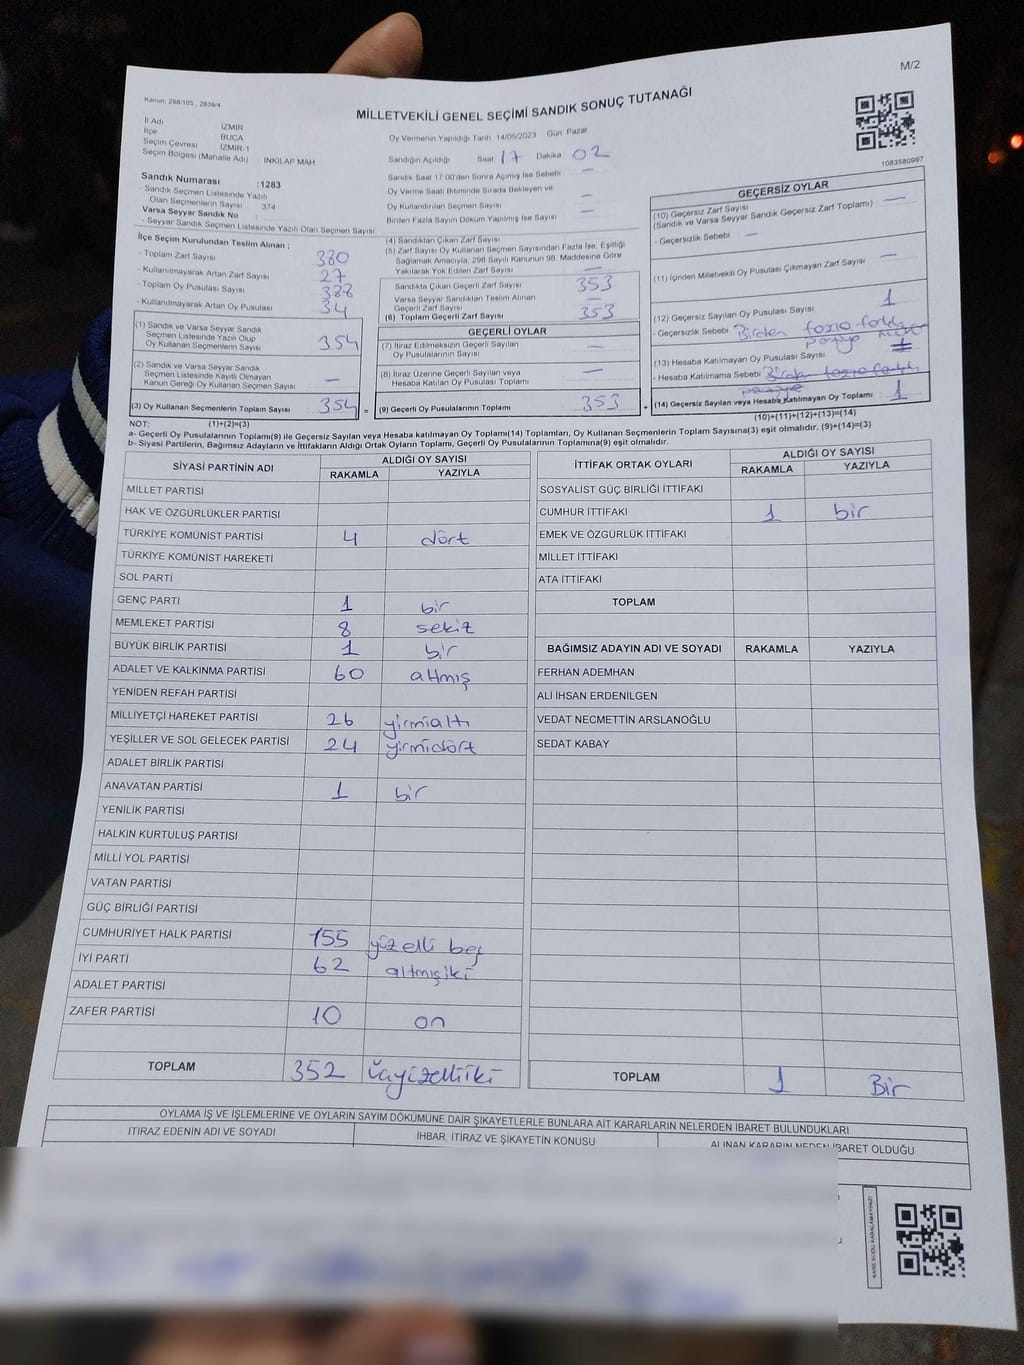 M/2
Kanun, 298/105, 2839/4
MİLLETVEKİLİ GENEL SEÇİMİ SANDIK SONUÇ TUTANAĞI
İl Adı İZMİR
İlçe BUCA
Seçim Çevresi İZMİR-1
Seçim Bölgesi (Mahalle Adı) İNKILAP MAH
Sandık Numarası :1283
- Sandık Seçmen Listesinde Yazılı
Olan Seçmenlerin Sayısı 374
Varsa Seyyar Sandık No :
- Seyyar Sandık Seçmen Listesinde Yazılı Olan Seçmen Sayısı:
Oy Vermenin Yapıldığı Tarih 14/05/2023 Gün Pazar
Sandığın Açıldığı Saat 17 Dakika 02
Sandık Saat 17:00'den Sonra Açılmış İse Sebebi —
Oy Verme Saati Bitiminde Sırada Bekleyen ve
Oy Kullandırılan Seçmen Sayısı —
Birden Fazla Sayım Döküm Yapılmış İse Sayısı —
1083580997
İlçe Seçim Kurulundan Teslim Alınan ;
- Toplam Zarf Sayısı 380
- Kullanılmayarak Artan Zarf Sayısı 27
- Toplam Oy Pusulası Sayısı 388
- Kullanılmayarak Artan Oy Pusulası 34
(1) Sandık ve Varsa Seyyar Sandık
Seçmen Listesinde Yazılı Olup
Oy Kullanan Seçmenlerin Sayısı 354
(2) Sandık ve Varsa Seyyar Sandık
Seçmen Listesinde Kayıtlı Olmayan
Kanun Gereği Oy Kullanan Seçmen Sayısı —
(3) Oy Kullanan Seçmenlerin Toplam Sayısı 354 =
(1)+(2)=(3)
(4) Sandıktan Çıkan Zarf Sayısı
(5) Zarf Sayısı Oy Kullanan Seçmen Sayısından Fazla İse, Eşitliği
Sağlamak Amacıyla, 298 Sayılı Kanunun 98. Maddesine Göre
Yakılarak Yok Edilen Zarf Sayısı —
Sandıkta Çıkan Geçerli Zarf Sayısı 353
Varsa Seyyar Sandıktan Teslim Alınan
Geçerli Zarf Sayısı —
(6) Toplam Geçerli Zarf Sayısı 353
GEÇERLİ OYLAR
(7) İtiraz Edilmeksizin Geçerli Sayılan
Oy Pusulalarının Sayısı —
(8) İtiraz Üzerine Geçerli Sayılan veya
Hesaba Katılan Oy Pusulası Toplamı —
(9) Geçerli Oy Pusulalarının Toplamı 353 +
GEÇERSİZ OYLAR
(10) Geçersiz Zarf Sayısı
(Sandık ve Varsa Seyyar Sandık Geçersiz Zarf Toplamı) —
- Geçersizlik Sebebi —
(11) İçinden Milletvekili Oy Pusulası Çıkmayan Zarf Sayısı —
(12) Geçersiz Sayılan Oy Pusulası Sayısı 1
- Geçersizlik Sebebi Birden fazla farklı
partiye mühür
(13) Hesaba Katılmayan Oy Pusulası Sayısı 1
- Hesaba Katılmama Sebebi Birden fazla farklı
partiye
(14) Geçersiz Sayılan veya Hesaba Katılmayan Oy Toplamı 1
(10)+(11)+(12)+(13)=(14)
NOT:
a- Geçerli Oy Pusulalarının Toplamı(9) ile Geçersiz Sayılan veya Hesaba katılmayan Oy Toplamı(14) Toplamları, Oy Kullanan Seçmenlerin Toplam Sayısına(3) eşit olmalıdır. (9)+(14)=(3)
b- Siyasi Partilerin, Bağımsız Adayların ve İttifakların Aldığı Ortak Oyların Toplamı, Geçerli Oy Pusulalarının Toplamına(9) eşit olmalıdır.
SİYASİ PARTİNİN ADI ALDIĞI OY SAYISI
RAKAMLA YAZIYLA
MİLLET PARTİSİ
HAK VE ÖZGÜRLÜKLER PARTİSİ
TÜRKİYE KOMÜNİST PARTİSİ 4 dört
TÜRKİYE KOMÜNİST HAREKETİ
SOL PARTİ
GENÇ PARTİ 1 bir
MEMLEKET PARTİSİ 8 sekiz
BÜYÜK BİRLİK PARTİSİ 1 bir
ADALET VE KALKINMA PARTİSİ 60 altmış
YENİDEN REFAH PARTİSİ
MİLLİYETÇİ HAREKET PARTİSİ 26 yirmialtı
YEŞİLLER VE SOL GELECEK PARTİSİ 24 yirmidört
ADALET BİRLİK PARTİSİ
ANAVATAN PARTİSİ 1 bir
YENİLİK PARTİSİ
HALKIN KURTULUŞ PARTİSİ
MİLLİ YOL PARTİSİ
VATAN PARTİSİ
GÜÇ BİRLİĞİ PARTİSİ
CUMHURİYET HALK PARTİSİ 155 yüzelli beş
İYİ PARTİ 62 altmışiki
ADALET PARTİSİ
ZAFER PARTİSİ 10 on
TOPLAM 352 üçyüzelliiki
İTTİFAK ORTAK OYLARI ALDIĞI OY SAYISI
RAKAMLA YAZIYLA
SOSYALİST GÜÇ BİRLİĞİ İTTİFAKI
CUMHUR İTTİFAKI 1 bir
EMEK VE ÖZGÜRLÜK İTTİFAKI
MİLLET İTTİFAKI
ATA İTTİFAKI
TOPLAM
BAĞIMSIZ ADAYIN ADI VE SOYADI RAKAMLA YAZIYLA
FERHAN ADEMHAN
ALİ İHSAN ERDENİLGEN
VEDAT NECMETTİN ARSLANOĞLU
SEDAT KABAY
TOPLAM 1 Bir
OYLAMA İŞ VE İŞLEMLERİNE VE OYLARIN SAYIM DÖKÜMÜNE DAİR ŞİKAYETLERLE BUNLARA AİT KARARLARIN NELERDEN İBARET BULUNDUKLARI
İTİRAZ EDENİN ADI VE SOYADI İHBAR, İTİRAZ VE ŞİKAYETİN KONUSU ALINAN KARARIN NEDEN İBARET OLDUĞU
KARE KODU KARALAMAYINIZ!